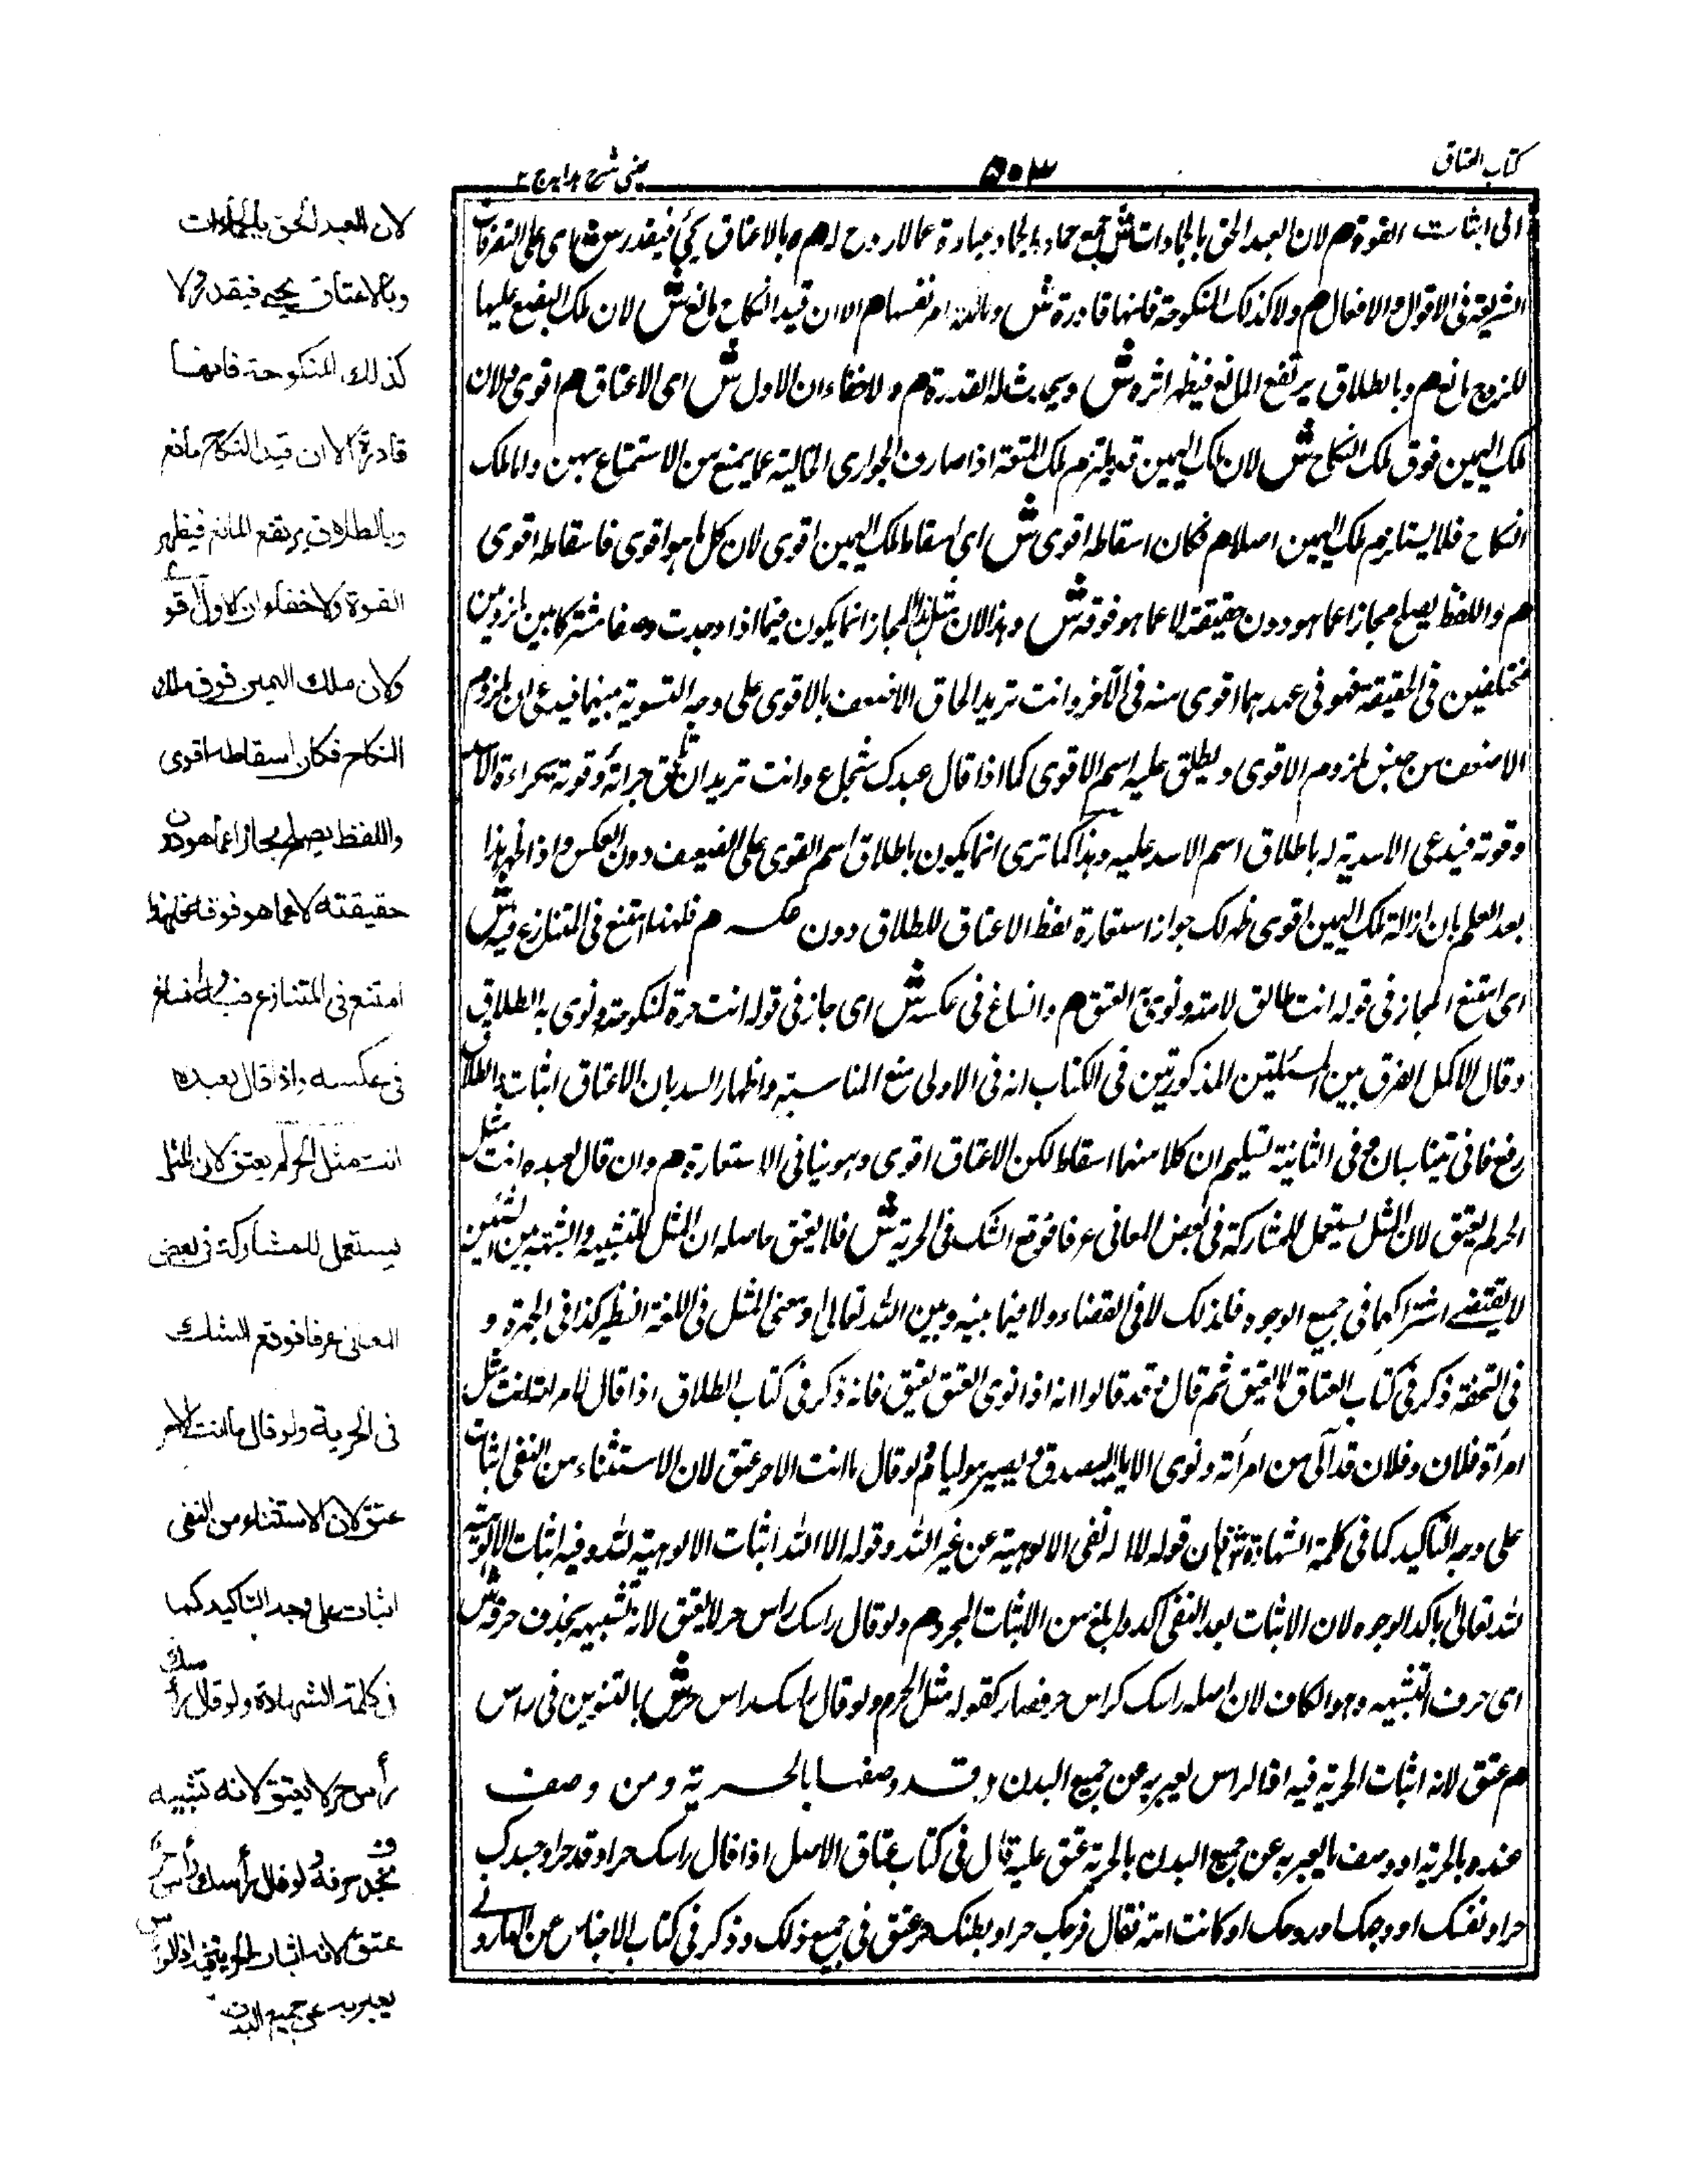 كتاب العتاق
٥٠٣
عينى شرح هدايه ج ٢
الى اثبات القوة هم لان العبد الحق بالجمادات ش جمع جماد والجماد عبارة عما لا روح له هم وبالاعتاق يحيى فيقدر ش اى على التصرفات
الشرعية فى الاقوال والافعال هم ولا كذلك المنكوحة فانها قادرة ش ومالكة امر نفسها هم الا ان قيد النكاح مانع ش لان ملك البضع عليها
للزوج مانع هم وبالطلاق يرتفع المانع فيظهر اثره ش ويحدث له القدرة هم ولا خفاء ان الاول ش اى الاعتاق هم اقوى ولان
ملك اليمين فوق ملك النكاح ش لان ملك اليمين قد يلزم ملك المتعة اذا صادف الجوارى الخالية عما يمنع من الاستمتاع بهن واما ملك
النكاح فلا يستلزم ملك اليمين اصلا هم فكان اسقاطه اقوى ش اى اسقاط ملك اليمين اقوى لان كل ما هو اقوى فاسقاطه اقوى
هم واللفظ يصلح مجازا عما هو دون حقيقته لا عما هو فوقه ش وهذا لان مثل هذا المجاز انما يكون فيما اذا وجدت وصفا مشتركا بين ملزومين
مختلفين فى الحقيقة فهو فى احدهما اقوى منه فى الآخر وانت تريد الحاق الاضعف بالاقوى على وجه التسوية بينهما فيدعى ان ملزوم
الاضعف من جنس ملزوم الاقوى ويطلق عليه اسم الاقوى كما اذا قال عبدك شجاع وانت تريد ان تلحق جراته وقوته بجراءة الاسد
وقوته فيدعى الاسدية له باطلاق اسم الاسد عليه وهذا كما ترى انما يكون باطلاق اسم القوى على الضعيف دون العكس واذا ظهر هذا
بعد العلم بان ازالة ملك اليمين اقوى ظهر لك جواز استعارة لفظ الاعتاق للطلاق دون عكسه هم فلهذا امتنع فى المتنازع فيه ش
اى امتنع المجاز فى قوله انت طالق لامته ونوى به العتق هم وانساغ فى عكسه ش اى جاز فى قوله انت حرة لمنكوحته ونوى به الطلاق
وقال الاكمل الفرق بين المسئلتين المذكورتين فى الكتاب انه فى الاولى منع المناسبة واظهار السد بان الاعتاق اثبات والطلاق
رفع فانى تيناسبان وفى الثانية تسليم ان كلا منهما اسقاط لكن الاعتاق اقوى وهو ينافى الاستعارة هم وان قال لعبده انت مثل
الحر لم يعتق لان المثل يستعمل للمشاركة فى بعض المعانى عرفا فوقع الشك فى الحرية ش فلا يعتق حاصله ان المثل للتشبيه والشبه بين الشيئين
لا يقتضى اشتراكهما فى جميع الوجوه فلذلك لا فى القضاء ولا فيما بينه وبين الله تعالى ومعنى المثل فى اللغة النظير كذا فى الجمهرة و
فى التحفة ذكر فى كتاب العتاق لا يعتق ثم قال وقد قالوا انه اذا نوى العتق يعتق فانه ذكر فى كتاب الطلاق اذا قال لامراته انت مثل
امرأة فلان وفلان قد آلى من امرأته ونوى الايلاء يصدق ويصير موليا هم ولو قال ما انت الا حر عتق لان الاستثناء من النفى اثبات
على وجه التاكيد كما فى كلمة الشهادة ش فان قوله لا اله نفى الالوهية عن غير الله وقوله الا الله اثبات الالوهية لله وفيه اثبات الالوهية
لله تعالى باكد الوجوه لان الاثبات بعد النفى آكد وابلغ من الاثبات المجرد هم ولو قال راسك راس حر لا يعتق لانه تشبيه بحذف حرفه ش
اى حرف التشبيه وهو الكاف لان اصله راسك كراس حر فصار كقوله مثل الحر هم ولو قال راسك راس حر ش بالتنوين فى راس
هم عتق لانه اثبات الحرية فيه اذ الراس يعبر به عن جميع البدن وقد وصفها بالحرية ومن وصف
عبده بالحرية او وصف ما يعبر به عن جميع البدن بالحرية عتق عليه قال فى كتاب عتاق الاصل اذا قال راسك حر او قد حر او جسدك
حر او نفسك او وجهك او روحك او كانت امة فقال فرجك حر او بطنك حر عتق فى جميع ذلك وذكر فى كتاب الاجناس عن الهارونى
لان العبد الحق بالجمادات
وبالاعتاق يحيى فيقدر ولا
كذلك المنكوحة فانها
قادرة الا ان قيد النكاح مانع
وبالطلاق يرتفع المانع فيظهر
القوة ولا خفاء ان الاول اقوى
ولان ملك اليمين فوق ملك
النكاح فكان اسقاطه اقوى
واللفظ يصلح مجازا عما هو دون
حقيقته لا عما هو فوقه فلهذا
امتنع فى المتنازع فيه وانساغ
فى عكسه واذا قال لعبده
انت مثل الحر لم يعتق لان المثل
يستعمل للمشاركة فى بعض
المعانى عرفا فوقع الشك
فى الحرية ولو قال ما انت الا حر
عتق لان الاستثناء من النفى
اثبات على وجه التاكيد كما
فى كلمة الشهادة ولو قال رأسك
رأس حر لا يعتق لانه تشبيه
بحذف حرفه ولو قال رأسك رأس حر
عتق لانه اثبات الحرية فيه اذ الراس
يعبر به عن جميع البدن